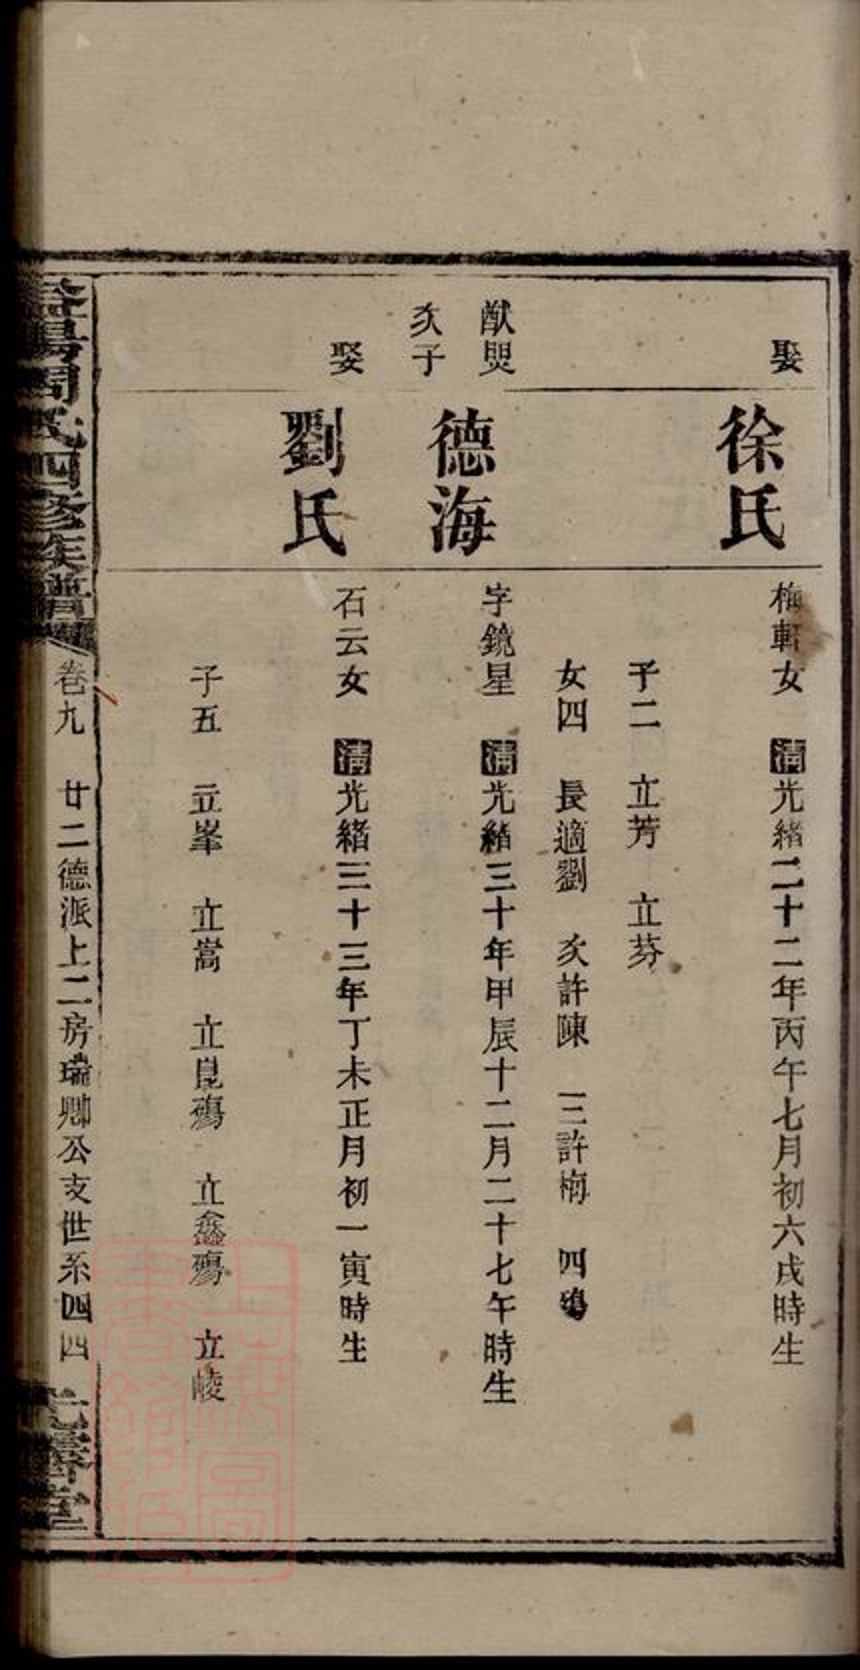 娶
徐氏
梅軒女 清光緒二十二年丙午七月初六戌時生
子二 立芳 立芬
女四 長適劉 次許陳 三許梅 四殤
猷煛
次子
德海
字鏡星 清光緒三十年甲辰十二月二十七午時生
娶
劉氏
石云女 清光緒三十三年丁未正月初一寅時生
子五 立峯 立嵩 立崑殤 立鑫殤 立崚
益陽周氏四修族譜
卷九 廿二德派上二房瑞卿公支世系四四
上海圖書館藏